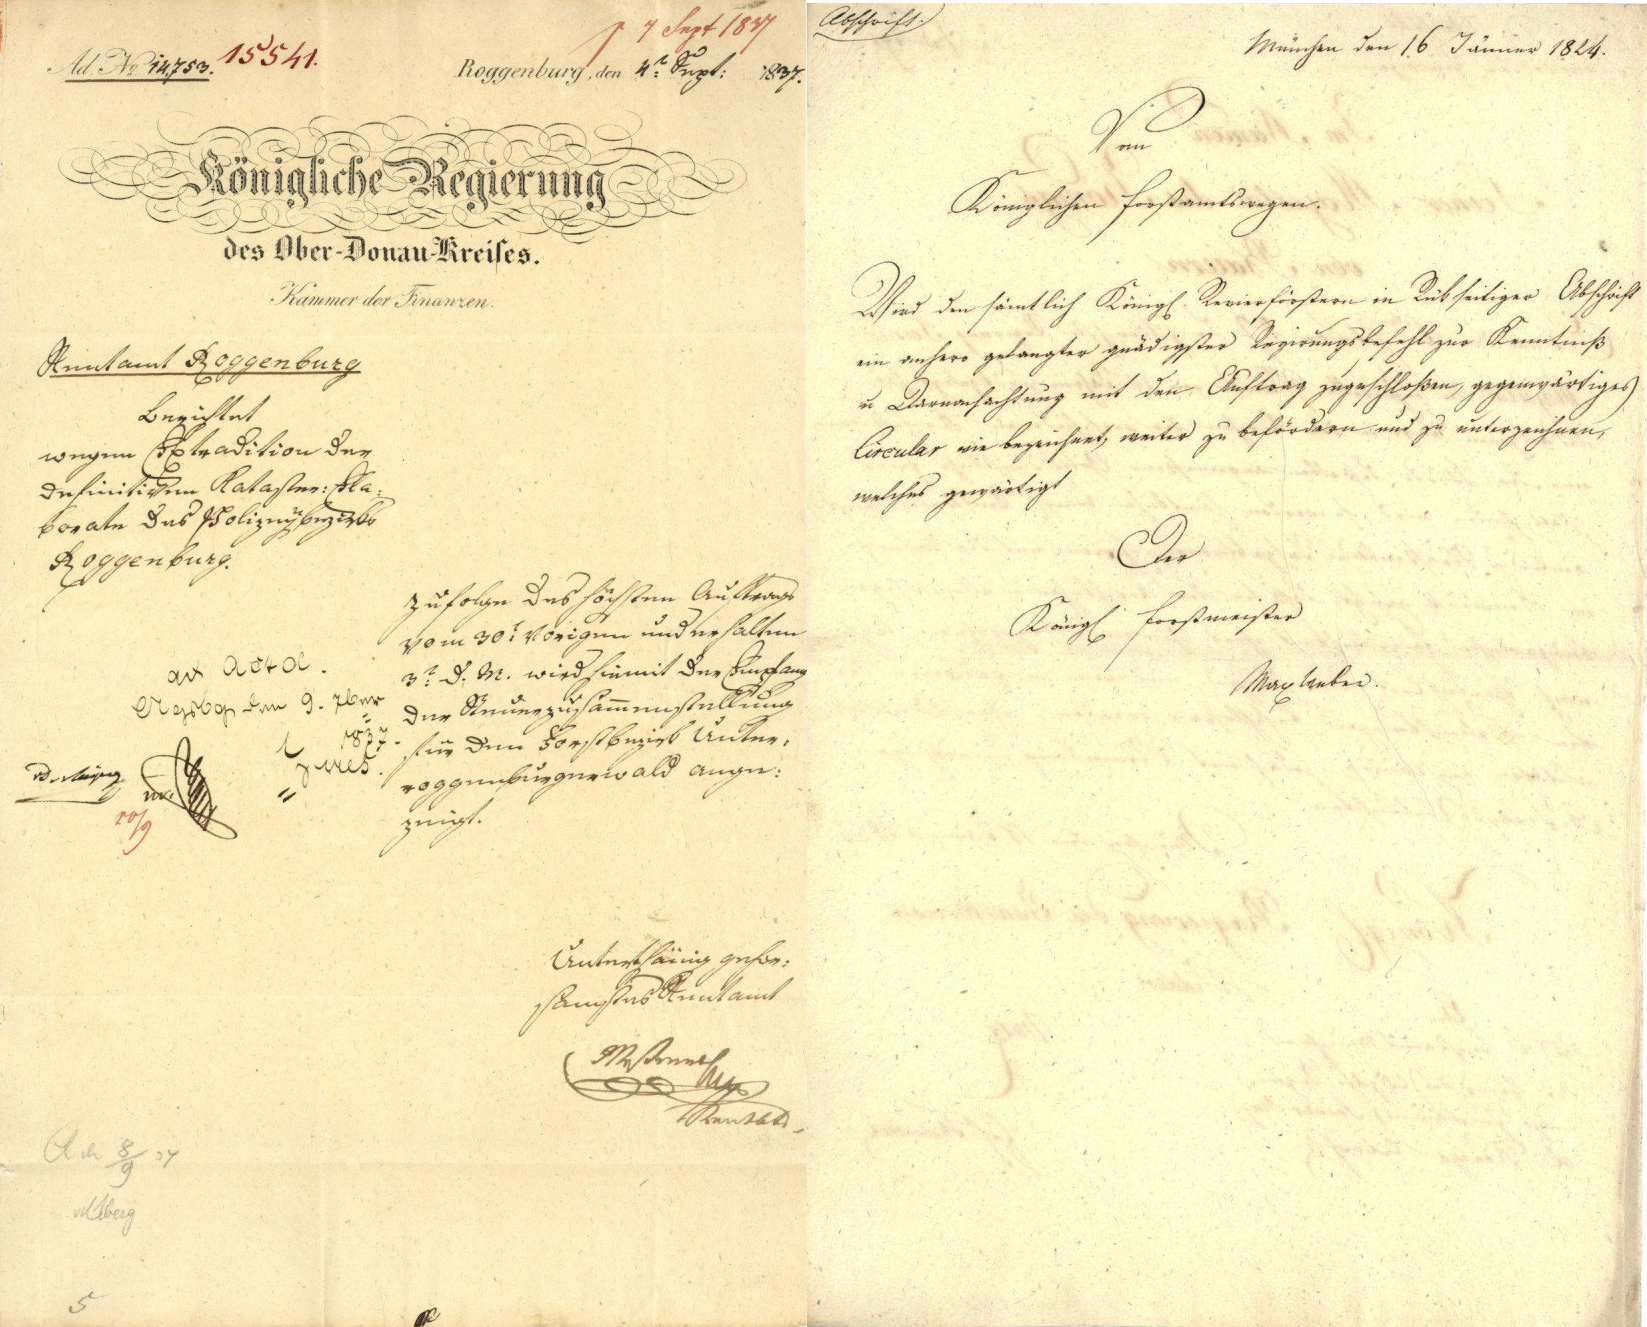 Ad. No 14,753. 15541.
p 7 Sept 1837
Roggenburg, den 4t. Sept: 1837.
Königliche Regierung
des Ober-Donau-Kreises.
Kammer der Finanzen.
Rentamt Roggenburg
Berichtet
wegen Extradition der
definitiven Kataster: Ela:
borate des Polizeybezirks
Roggenburg.
Zufolge des höchsten Auftrags
vom 30t. vorigen und erhalten
3t. d. M. wird hiemit der Empfang
der Steuerzusammenstellung
für den Forstbezirk Unter:
roggenburgerwald ange:
zeigt.
ad Acta.
den 9. 7ber
1837.
10/9
Unterthänig gehor:
samstes Rentamt
Rentbt.
8/9 37
5
Abschrift.
München den 16 Jänner 1824.
Von
Königlichen Forstamtswegen.
Wird den sämtlich Königl Revierförstern in Rükseitiger Abschrift
ein anhero gelangter gnädigster Regirungsbefehl zur Kenntniß
u Darnachachtung mit den Auftrag zugeschloßen, gegenwärtiges
Circular wie bezeichnet, weiter zu befördern und zu unterzeichnen,
welches gewärtigt
Der
Königl Forstmeister